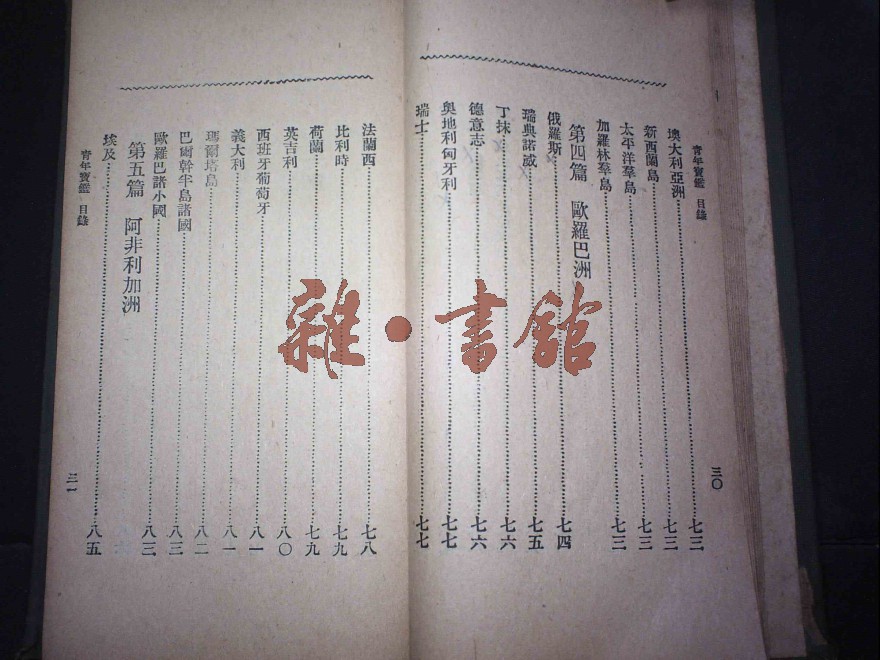 青年寶鑑 目錄
三〇
澳大利亞洲 七三
新西蘭島 七三
太平洋羣島 七三
加羅林羣島 七三
第四篇 歐羅巴洲
俄羅斯 七四
瑞典諾威 七五
丁抹 七六
德意志 七六
奥地利匈牙利 七七
瑞士 七七
法蘭西 七八
比利時 七九
荷蘭 七九
英吉利 八〇
西班牙葡萄牙 八一
義大利 八一
瑪爾塔島 八二
巴爾幹半島諸國 八三
歐羅巴諸小國 八三
第五篇 阿非利加洲
埃及 八五
青年寶鑑 目錄
三一
雜·書館